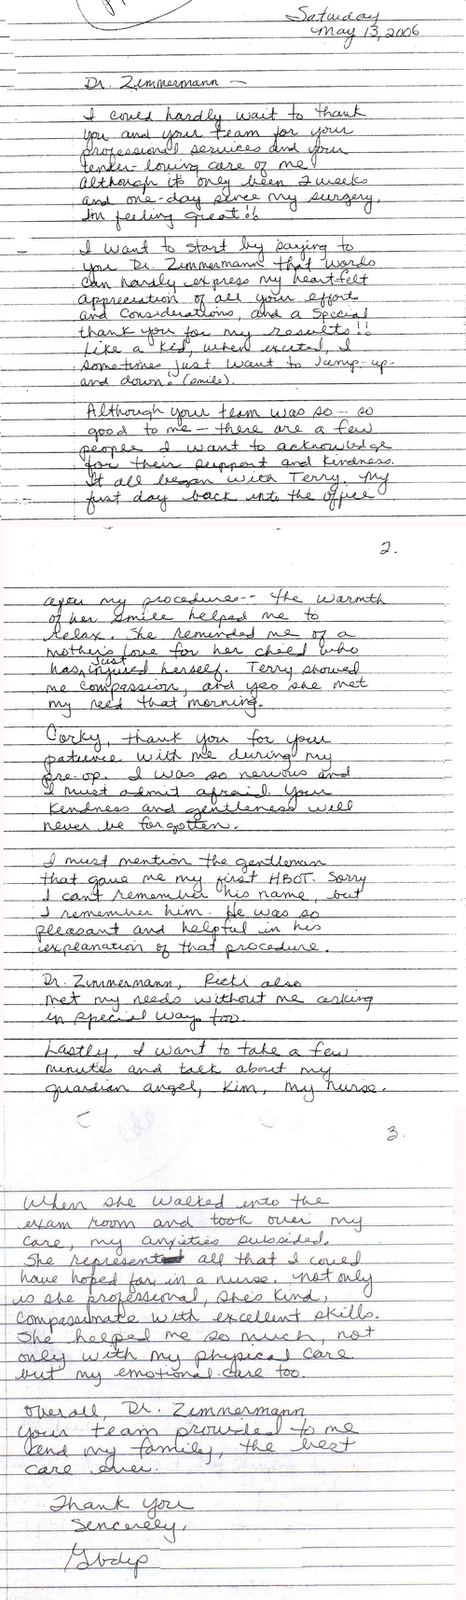 Saturday
May 13, 2006
Dr. Zimmermann —
I could hardly wait to thank
you and your team for your
professional services and your
tender-loving care of me!
Although it's only been 2 weeks
and one-day since my surgery,
I'm feeling great!!
I want to start by saying to
you Dr. Zimmermann that words
can hardly express my heart-felt
appreciation of all your effort
and considerations, and a special
thank you for my results!!
Like a kid, when excited, I
sometimes just want to jump-up-
and down! (smile).
Although your team was so — so
good to me — there are a few
people I want to acknowledge
for their support and kindness.
It all began with Terry. My
first day back into the office
2.
after my procedure -- the warmth
of her smile helped me to
relax. She reminded me of a
mother's love for her child who
has just injured herself. Terry showed
me compassion, and yes she met
my need that morning.
Corky, thank you for your
patience with me during my
pre-op. I was so nervous and
I must admit afraid. Your
kindness and gentleness will
never be forgotten.
I must mention the gentleman
that gave me my first HBOT. Sorry
I can't remember his name, but
I remember him. He was so
pleasant and helpful in his
explanation of that procedure.
Dr. Zimmermann, Ricki also
met my needs without me asking
in special ways too.
Lastly, I want to take a few
minutes and talk about my
guardian angel, Kim, my nurse.
3.
When she walked into the
exam room and took over my
care, my anxieties subsided.
She represented all that I could
have hoped for in a nurse. Not only
is she professional, she's kind,
compassionate with excellent skills.
She helped me so much, not
only with my physical care
but my emotional care too.
Overall, Dr. Zimmermann
your team provided to me
and my family, the best
care ever.
Thank you
Sincerely,